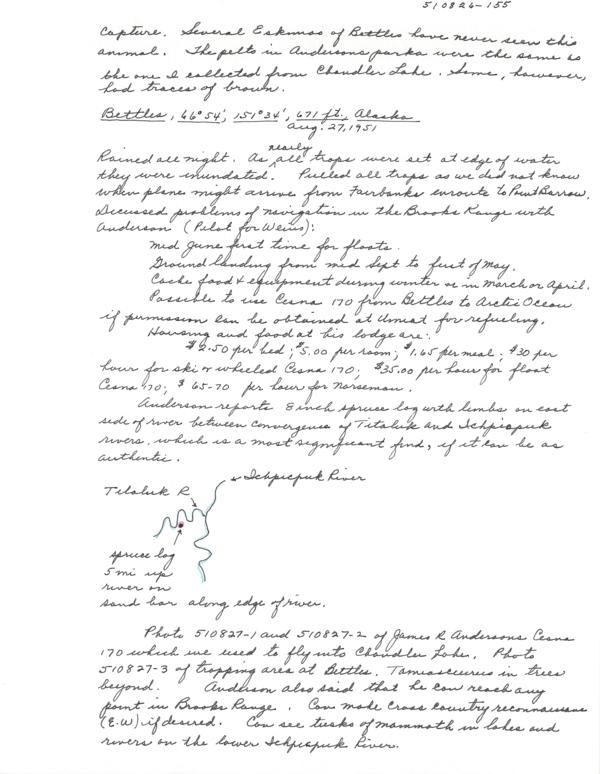 510826-155
capture. Several Eskimos of Bettles have never seen this
animal. The pelts in Andersons parka were the same as
the one I collected from Chandler Lake. Some, however,
had traces of brown.
Bettles, 66°54', 151°34', 671 ft., Alaska
Aug. 27, 1951
Rained all night. As nearly all traps were set at edge of water
they were inundated. Pulled all traps as we did not know
when plane might arrive from Fairbanks enroute to Point Barrow.
Discussed problems of navigation in the Brooks Range with
Anderson (Pilot for Weins):
Mid June first time for floats.
Ground landing from mid Sept to first of May.
Cache food & equipment during winter or in March or April.
Possible to use Cesna 170 from Bettles to Arctic Ocean
if permission can be obtained at Umiat for refueling.
Housing and food at his lodge are:
$2.50 per bed; $5.00 per room; $1.65 per meal; $30 per
hour for ski or wheeled Cesna 170; $35.00 per hour for float
Cesna 170; $65-70 per hour for Norseman.
Anderson reports 8 inch spruce log with limbs on east
side of river between convergence of Titaluk and Ichpicpuk
rivers. which is a most significant find, if it can be as
authentic.
Ichpicpuk River
Titaluk R
spruce log
5 mi up
river on
sand bar along edge of river.
Photo 510827-1 and 510827-2 of James R Andersons Cesna
170 which we used to fly into Chandler Lake. Photo
510827-3 of trapping area at Bettles. Tamiasciurus in trees
beyond. Anderson also said that he can reach any
point in Brooks Range. Can make cross country reconnaissance
(E.W) if desired. Can see tusks of mammoth in lakes and
rivers on the lower Ichpicpuk River.